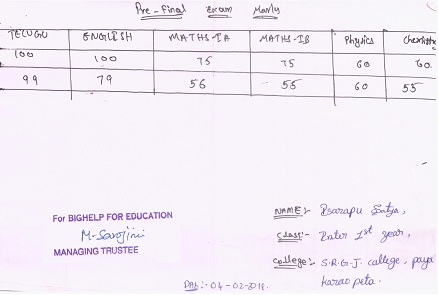 Pre - Final Exam Marks
TELUGU ENGLISH MATHS-IA MATHS-IB Physics Chemistry
100 100 75 75 60 60
99 79 56 60 55
For BIGHELP FOR EDUCATION
M. Sarojini
MANAGING TRUSTEE
NAME:- Satya,
class:- Inter 1st year,
college:- S.R.G.J. college, paya
karao peta.
04-02-2019.